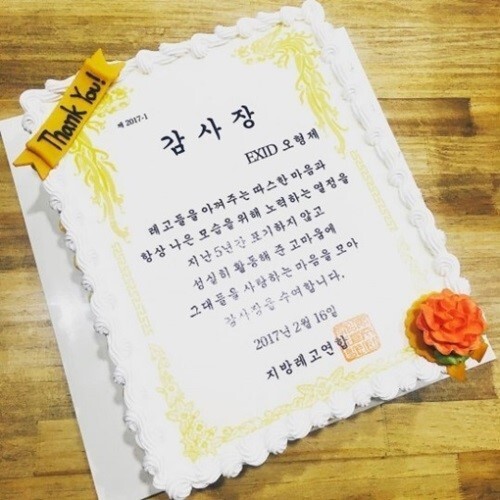 Thank You!
제 2017-1
감사장
EXID 오형제
레고들을 아껴주는 따스한 마음과
항상 나은 모습을 위해 노력하는 열정을
지난 5년간 포기하지 않고
성실히 활동해 준 고마움에
그대들을 사랑하는 마음을 모아
감사장을 수여합니다.
2017년 2월 16일
지방레고연합